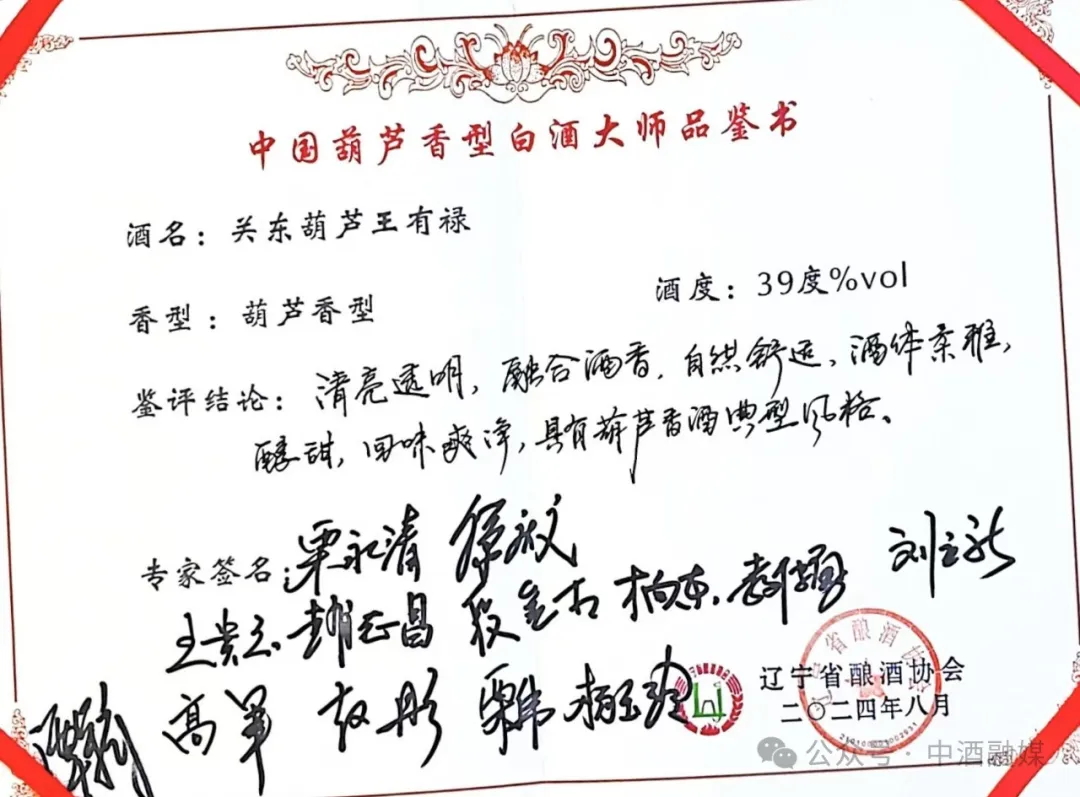 中国葫芦香型白酒大师品鉴书
酒名：关东葫芦王有禄
香型：葫芦香型
酒度：39度%vol
鉴评结论：清亮透明，融合酒香，自然舒适，酒体柔雅，
醇甜，回味爽净，具有葫芦香酒典型风格。
专家签名：栗永清
王贵玉 段 柏东 刘立新
高军 赵彤 栗伟
辽宁省酿酒协会
二〇二四年八月
省酿酒协
公众号·中酒融媒